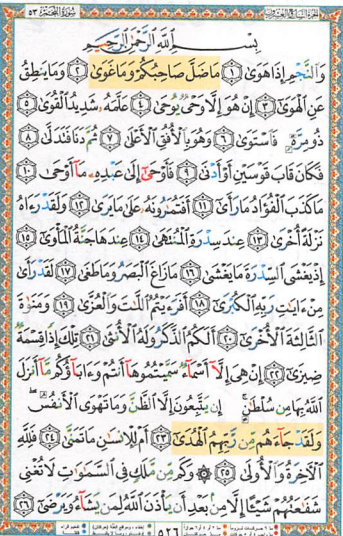 بِسْمِ ٱللَّهِ ٱلرَّحْمَٰنِ ٱلرَّحِيمِ
وَٱلنَّجْمِ إِذَا هَوَىٰ ١ مَا ضَلَّ صَاحِبُكُمْ وَمَا غَوَىٰ ٢ وَمَا يَنطِقُ
عَنِ ٱلْهَوَىٰ ٣ إِنْ هُوَ إِلَّا وَحْىٌ يُوحَىٰ ٤ عَلَّمَهُۥ شَدِيدُ ٱلْقُوَىٰ ٥
ذُو مِرَّةٍ فَٱسْتَوَىٰ ٦ وَهُوَ بِٱلْأُفُقِ ٱلْأَعْلَىٰ ٧ ثُمَّ دَنَا فَتَدَلَّىٰ ٨
فَكَانَ قَابَ قَوْسَيْنِ أَوْ أَدْنَىٰ ٩ فَأَوْحَىٰٓ إِلَىٰ عَبْدِهِۦ مَآ أَوْحَىٰ ١٠
مَا كَذَبَ ٱلْفُؤَادُ مَا رَأَىٰٓ ١١ أَفَتُمَٰرُونَهُۥ عَلَىٰ مَا يَرَىٰ ١٢ وَلَقَدْ رَءَاهُ
نَزْلَةً أُخْرَىٰ ١٣ عِندَ سِدْرَةِ ٱلْمُنتَهَىٰ ١٤ عِندَهَا جَنَّةُ ٱلْمَأْوَىٰٓ ١٥
إِذْ يَغْشَى ٱلسِّدْرَةَ مَا يَغْشَىٰ ١٦ مَا زَاغَ ٱلْبَصَرُ وَمَا طَغَىٰ ١٧ لَقَدْ رَأَىٰ
مِنْ ءَايَٰتِ رَبِّهِ ٱلْكُبْرَىٰٓ ١٨ أَفَرَءَيْتُمُ ٱللَّٰتَ وَٱلْعُزَّىٰ ١٩ وَمَنَوٰةَ
ٱلثَّالِثَةَ ٱلْأُخْرَىٰٓ ٢٠ أَلَكُمُ ٱلذَّكَرُ وَلَهُ ٱلْأُنثَىٰ ٢١ تِلْكَ إِذًا قِسْمَةٌ
ضِيزَىٰٓ ٢٢ إِنْ هِىَ إِلَّآ أَسْمَآءٌ سَمَّيْتُمُوهَآ أَنتُمْ وَءَابَآؤُكُم مَّآ أَنزَلَ
ٱللَّهُ بِهَا مِن سُلْطَٰنٍ إِن يَتَّبِعُونَ إِلَّا ٱلظَّنَّ وَمَا تَهْوَى ٱلْأَنفُسُ
وَلَقَدْ جَآءَهُم مِّن رَّبِّهِمُ ٱلْهُدَىٰٓ ٢٣ أَمْ لِلْإِنسَٰنِ مَا تَمَنَّىٰ ٢٤ فَلِلَّهِ
ٱلْءَاخِرَةُ وَٱلْأُولَىٰ ٢٥ وَكَم مِّن مَّلَكٍ فِى ٱلسَّمَٰوَٰتِ لَا تُغْنِى
شَفَٰعَتُهُمْ شَيْـًٔا إِلَّا مِنۢ بَعْدِ أَن يَأْذَنَ ٱللَّهُ لِمَن يَشَآءُ وَيَرْضَىٰٓ ٢٦
٥٢٦